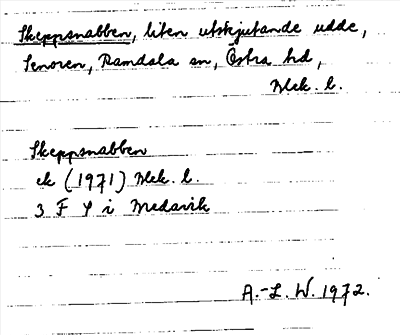 Skeppsnabben, liten utskjutande udde,
Senoren, Ramdala sn, Östra hd,
Blek. l.
Skeppsnabben
ek (1971) Blek. l.
3 F S i Medavik
A.-L. W. 1972.